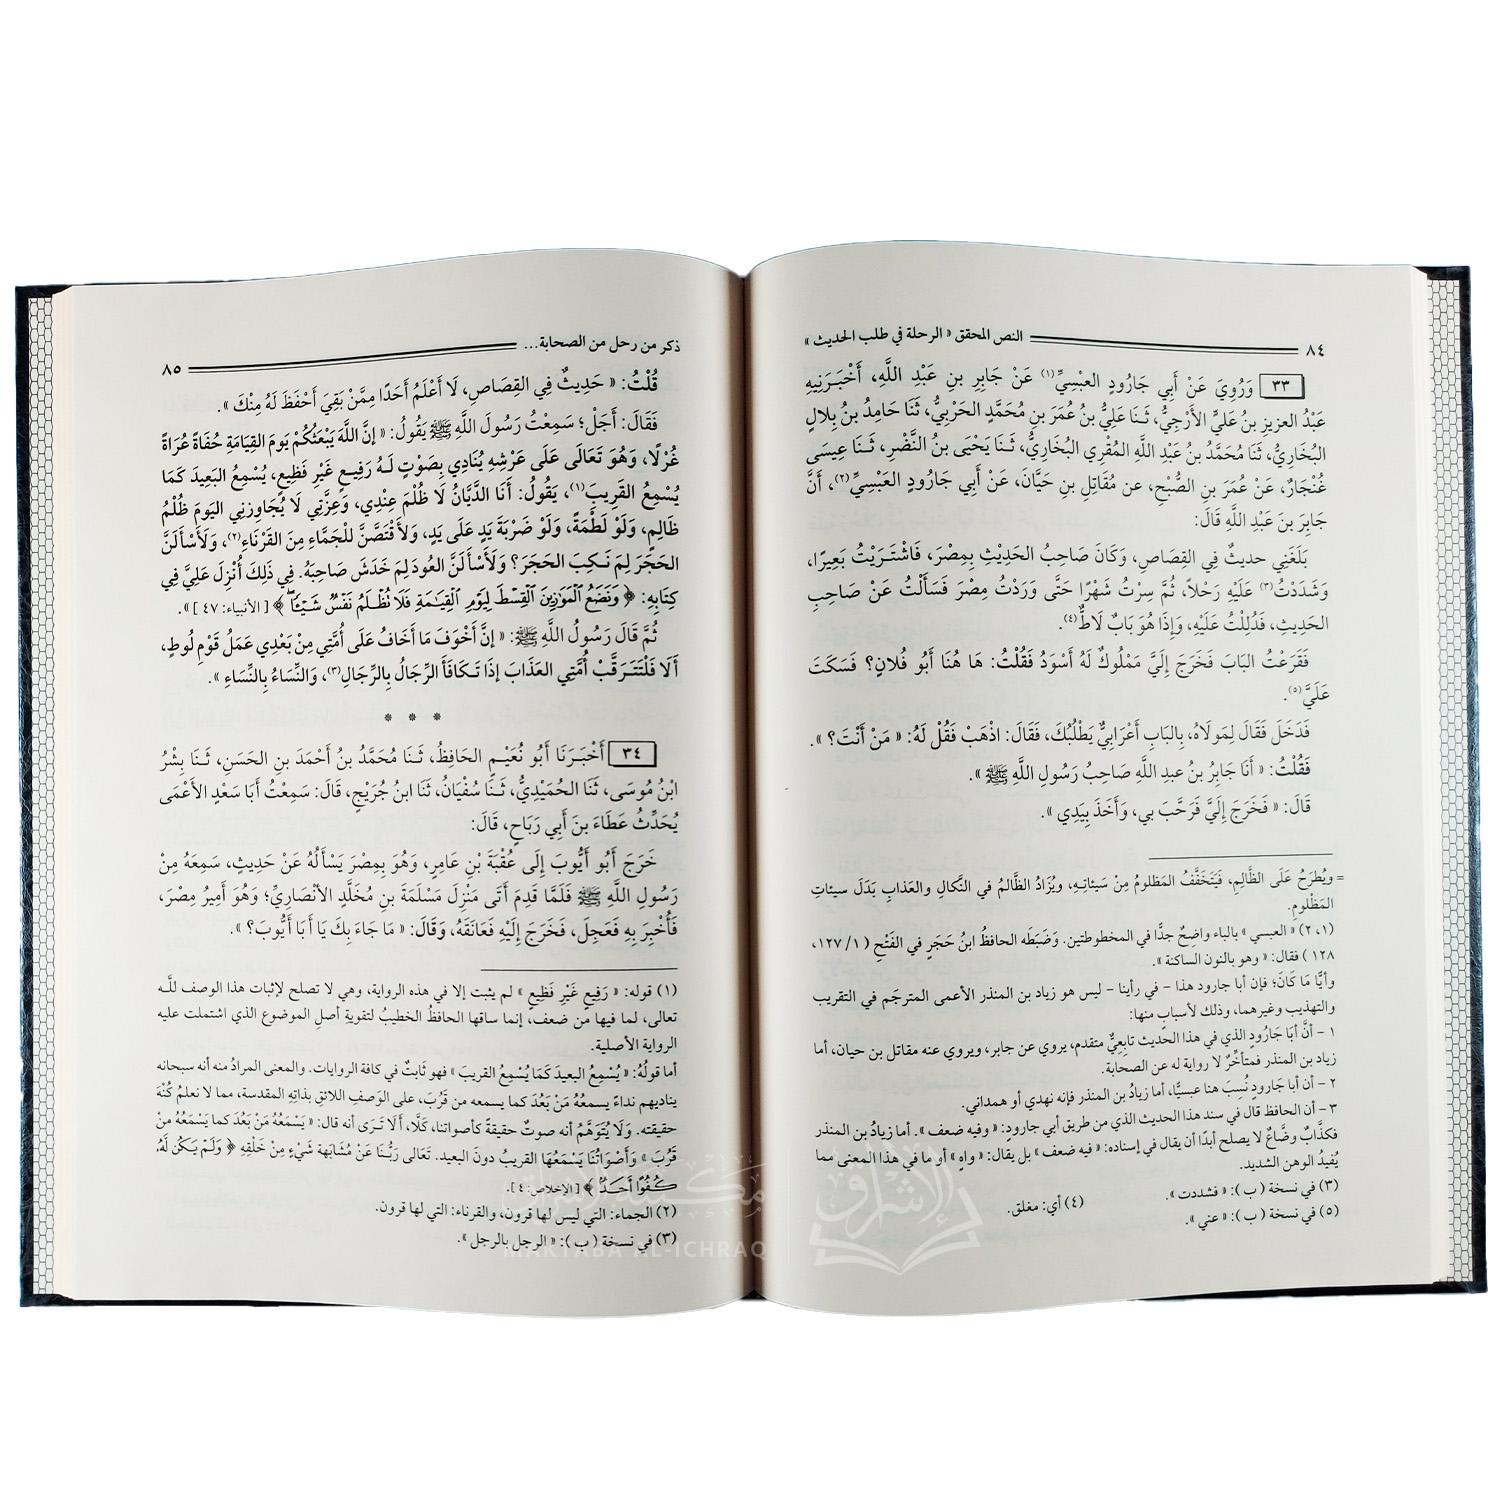 ٨٤ النص المحقق « الرحلة في طلب الحديث »
٣٣ وَرُوِيَ عَنْ أَبِي جَارُودٍ العَبْسِيِّ(١) عَنْ جَابِرِ بنِ عَبْدِ اللَّهِ، أَخْبَرَنِيهِ
عَبْدُ العزيزِ بنُ عَلِيٍّ الأَزَجِيُّ، ثَنَا عَلِيُّ بنُ عُمَرَ بنِ مُحَمَّدٍ الحَرْبِيُّ، ثَنَا حَامِدُ بنُ بِلَالٍ
البُخَارِيُّ، ثَنَا مُحَمَّدُ بنُ عَبْدِ اللَّهِ المُقْرِي البُخَارِيُّ، ثَنَا يَحْيَى بنُ النَّضْرِ، ثَنَا عِيسَى
غُنْجَارٌ، عَنْ عُمَرَ بنِ الصُّبْحِ، عن مُقَاتِلِ بنِ حَيَّانَ، عَنْ أَبِي جَارُودٍ العَبْسِيِّ(٢)، أَنَّ
جَابِرَ بنَ عَبْدِ اللَّهِ قَالَ:
بَلَغَنِي حديثٌ فِي القِصَاصِ، وَكَانَ صَاحِبُ الحَدِيْثِ بِمِصْرَ، فَاشْتَرَيْتُ بَعِيرًا،
وَشَدَدْتُ(٣) عَلَيْهِ رَحْلاً، ثُمَّ سِرْتُ شَهْرًا حَتَّى وَرَدْتُ مِصْرَ فَسَأَلْتُ عَنْ صَاحِبِ
الحَدِيثِ، فَدُلِلْتُ عَلَيْهِ، وَإِذَا هُوَ بَابٌ لَاطٌّ(٤).
فَقَرَعْتُ البَابَ فَخَرَجَ إِلَيَّ مَمْلُوكٌ لَهُ أَسْوَدُ فَقُلْتُ: هَا هُنَا أَبُو فُلَانٍ؟ فَسَكَتَ
عَلَيَّ(٥).
فَدَخَلَ فَقَالَ لِمَوْلَاهُ، بِالبَابِ أَعْرَابِيٌّ يَطْلُبُكَ، فَقَالَ: اذْهَبْ فَقُلْ لَهُ: « مَنْ أَنْتَ؟ ».
فَقُلْتُ: « أَنَا جَابِرُ بنُ عبدِ اللَّهِ صَاحِبُ رَسُولِ اللَّهِ ﷺ ».
قَالَ: « فَخَرَجَ إِلَيَّ فَرَحَّبَ بي، وَأَخَذَ بِيَدِي ».
= ويُطرَحُ عَلَى الظَّالِمِ، فَيَتَخَفَّفُ المَظلومُ مِنْ سَيئاتِهِ، ويُزَادُ الظَّالمُ في النَّكالِ والعَذابِ بَدَلَ سيئاتِ
المَظْلومِ.
(١، ٢) « العبسي » بالباء واضِحٌ جدًّا في المخطوطتين. وَضَبَطَه الحافظُ ابنُ حَجَرٍ في الفَتْحِ ( ١/ ١٢٧،
١٢٨ ) فقال: « وهو بالنون الساكنة ».
وأيًّا مَا كَانَ؛ فإن أبا جارود هذا - في رأينا - ليس هو زياد بن المنذر الأعمى المترجَم في التقريب
والتهذيب وغيرهما، وذلك لأسبابٍ منها:
١ - أنَّ أبَا جَارُودٍ الذي في هذا الحَديث تابِعِيٌّ متقدم، يروي عن جابر، ويروي عنه مقاتل بن حيان، أما
زياد بن المنذر فمتأخِّرٌ لا رواية له عن الصحابة.
٢ - أن أبا جَارودٍ نُسِبَ هنا عبسيًّا، أما زيادُ بن المنذر فإنه نهدي أو همداني.
٣ - أن الحافظ قال في سند هذا الحديث الذي من طريق أبي جارودٍ: « وفيه ضعف ». أما زيادُ بن المنذر
فكذَّابٌ وضَّاعٌ لا يصلح أبدًا أن يقال في إسناده: « فيه ضعف » بل يقال: « واهٍ » أو ما في هذا المعنى مما
يُفيدُ الوهن الشديد.
(٣) في نسخة ( ب ): « فشددت ». (٤) أي: مغلق.
(٥) في نسخة ( ب ): « عني ».
ذكر من رحل من الصحابة... ٨٥
قُلْتُ: « حَدِيثٌ فِي القِصَاصِ، لَا أَعْلَمُ أَحَدًا مِمَّنْ بَقِيَ أَحْفَظَ لَهُ مِنْكَ ».
فَقَالَ: أَجَلْ؛ سَمِعْتُ رَسُولَ اللَّهِ ﷺ يَقُولُ: « إِنَّ اللَّهَ يَبْعَثُكُمْ يَومَ القِيَامَةِ حُفَاةً عُرَاةً
غُرْلًا، وَهُوَ تَعَالَى عَلَى عَرْشِهِ يُنَادِي بِصَوْتٍ لَهُ رَفِيعٍ غَيْرِ فَظِيعٍ، يُسْمِعُ البَعِيدَ كَمَا
يُسْمِعُ القَرِيبَ(١)، يَقُولُ: أَنَا الدَّيَّانُ لَا ظُلْمَ عِنْدِي، وَعِزَّتِي لَا يُجَاوِزنِي اليَومَ ظُلْمُ
ظَالِمٍ، وَلَوْ لَطْمَةً، وَلَوْ ضَرْبَةَ يَدٍ عَلَى يَدٍ، وَلَأَقْتَصَّنَّ لِلْجَمَّاءِ مِنَ القَرْنَاءِ(٢)، وَلَأَسْأَلَنَّ
الحَجَرَ لِمَ نَكِبَ الحَجَرَ؟ وَلَأَسْأَلَنَّ العُودَ لِمَ خَدَشَ صَاحِبَهُ. فِي ذَلِكَ أُنْزِلَ عَلَيَّ فِي
كِتَابِهِ: ﴿ وَنَضَعُ ٱلْمَوَٰزِينَ ٱلْقِسْطَ لِيَوْمِ ٱلْقِيَٰمَةِ فَلَا تُظْلَمُ نَفْسٌ شَيْـًٔا ﴾ [ الأنبياء: ٤٧ ] ».
ثُمَّ قَالَ رَسُولُ اللَّهِ ﷺ: « إِنَّ أَخْوَفَ مَا أَخَافُ عَلَى أُمَّتِي مِنْ بَعْدِي عَمَلُ قَوْمِ لُوطٍ،
أَلَا فَلْتَتَرَقَّبْ أُمَّتِي العَذَابَ إِذَا تَكَافَأَ الرِّجَالُ بِالرِّجَالِ(٣)، وَالنِّسَاءُ بِالنِّسَاءِ ».
* * *
٣٤ أَخْبَرَنَا أَبُو نُعَيْمٍ الحَافِظُ، ثَنَا مُحَمَّدُ بنُ أَحْمَدَ بنِ الحَسَنِ، ثَنَا بِشْرُ
ابْنُ مُوسَى، ثَنَا الحُمَيْدِيُّ، ثَنَا سُفْيَانُ، ثَنَا ابنُ جُرَيْجٍ، قَالَ: سَمِعْتُ أَبَا سَعْدٍ الأَعْمَى
يُحَدِّثُ عَطَاءَ بنَ أَبِي رَبَاحٍ، قَالَ:
خَرَجَ أَبُو أَيُّوبَ إِلَى عُقْبَةَ بْنِ عَامِرٍ، وَهُوَ بِمِصْرَ يَسْأَلُهُ عَنْ حَدِيثٍ، سَمِعَهُ مِنْ
رَسُولِ اللَّهِ ﷺ فَلَمَّا قَدِمَ أَتَى مَنْزِلَ مَسْلَمَةَ بنِ مُخَلَّدٍ الأَنْصَارِيِّ؛ وَهُوَ أَمِيرُ مِصْرَ،
فَأُخْبِرَ بِهِ فَعَجِلَ، فَخَرَجَ إِلَيْهِ فَعَانَقَهُ، وَقَالَ: « مَا جَاءَ بِكَ يَا أَبَا أَيُّوبَ؟ ».
(١) قوله: « رَفِيعٍ غَيْرِ فَظِيعٍ » لم يثبت إلا في هذه الرواية، وهي لا تصلح لإثبات هذا الوصف للَّه
تعالى، لما فيها من ضعف، إنما ساقها الحافظُ الخطيبُ لتقويةِ أصلِ الموضوع الذي اشتملت عليه
الرواية الأصلية.
أما قولُهُ: « يُسْمِعُ البعيدَ كَمَا يُسْمِعُ القريبَ » فهو ثابتٌ في كافة الروايات. والمعنى المرادُ منه أنه سبحانه
يناديهم نداءً يسمعُهُ مَنْ بَعُدَ كما يسمعه من قَرُبَ، على الوَصفِ اللائق بذاتِهِ المقدسة، مما لا نعلمُ كُنْهَ
حقيقته. وَلَا يُتَوَهَّمُ أنه صوتٌ حقيقةً كأصواتنا، كَلَّا، أَلَا تَرَى أنه قال: « يَسْمَعُهُ مَنْ بَعُدَ كما يَسْمَعُهُ مَنْ
قَرُبَ » وَأَصْوَاتُنَا يَسْمَعُهَا القريبُ دونَ البعيد. تَعَالَى رَبُّنَا عَنْ مُشَابَهة شَيْءٍ مِنْ خَلْقِهِ ﴿ وَلَمْ يَكُن لَّهُۥ
كُفُوًا أَحَدٌۢ ﴾ [ الإخلاص: ٤ ].
(٢) الجماء: التي ليس لها قرون، والقرناء: التي لها قرون.
(٣) في نسخة ( ب ): « الرجل بالرجل ».
مكتبة الإشراق
MAKTABA AL-ICHRAQ
الإشراق